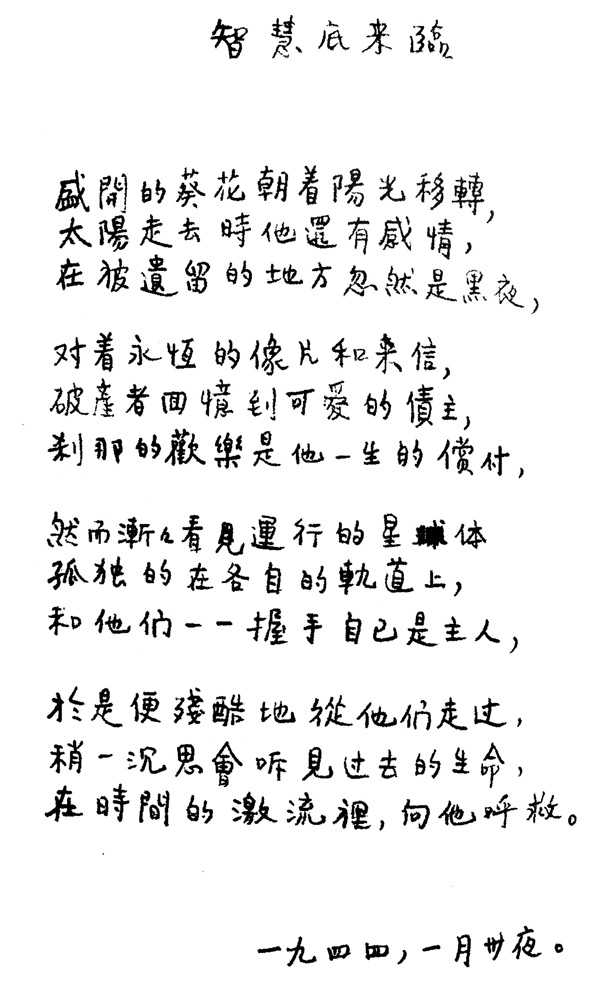 智慧底来臨
盛開的葵花朝着陽光移轉,
太陽走去時他還有感情,
在被遺留的地方忽然是黑夜,
对着永恆的像片和来信,
破產者回憶到可愛的債主,
刹那的歡樂是他一生的償付,
然而漸々看見運行的星体
孤独的在各自的軌道上,
和他們一一握手自己是主人,
於是便殘酷地從他們走过,
稍一沉思會听見过去的生命,
在時間的激流裡,向他呼救。
一九四四,一月卅夜。